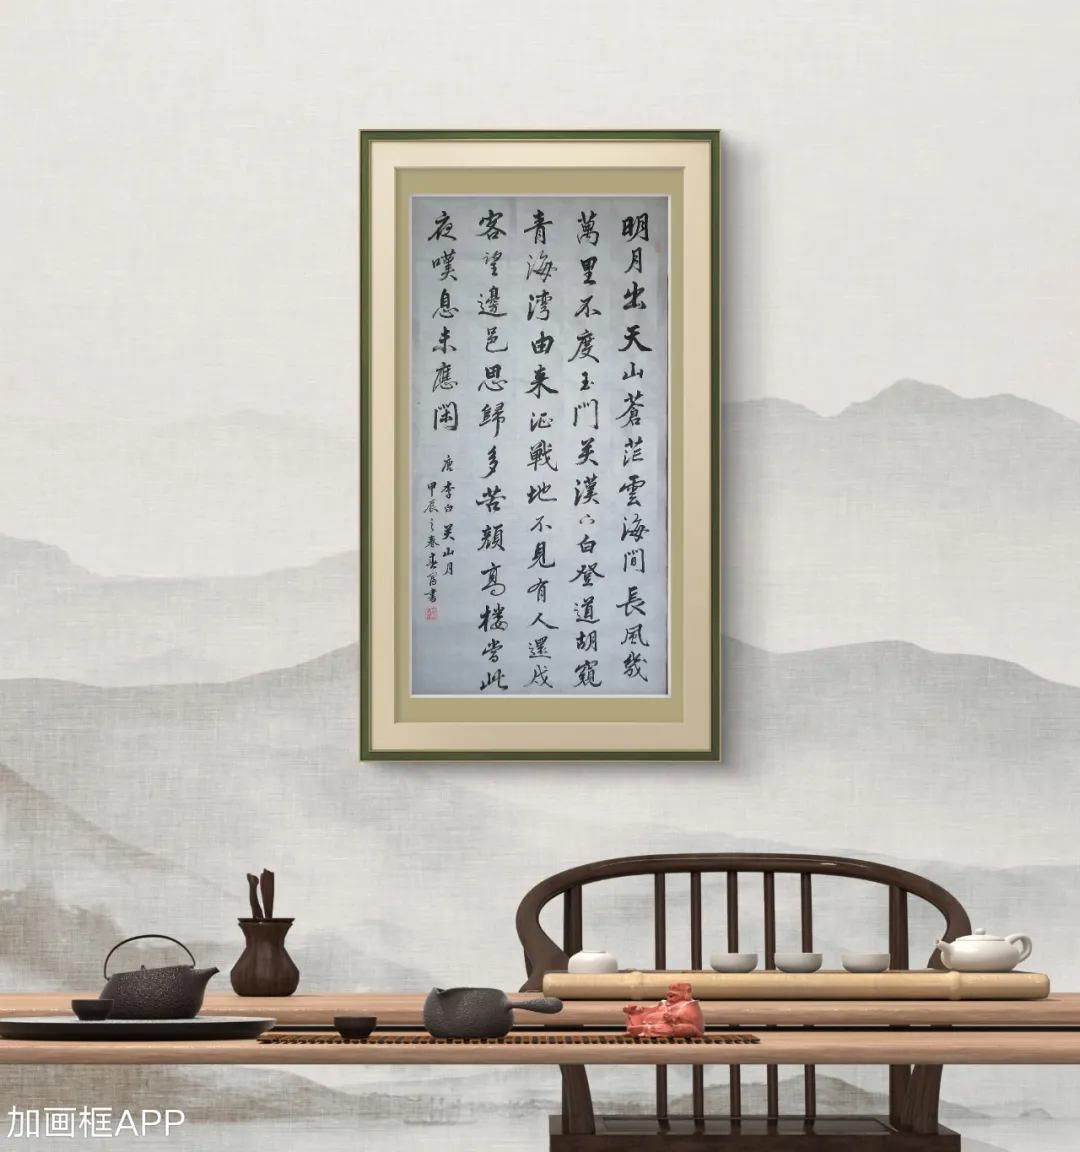 明月出天山蒼茫雲海間長風幾
萬里不度玉門关漢下白登道胡窺
青海湾由来征戰地不見有人還戍
客望邊邑思歸多苦顏高楼當此
夜嘆息未應闲
唐李白关山月
甲辰之春書
加画框APP